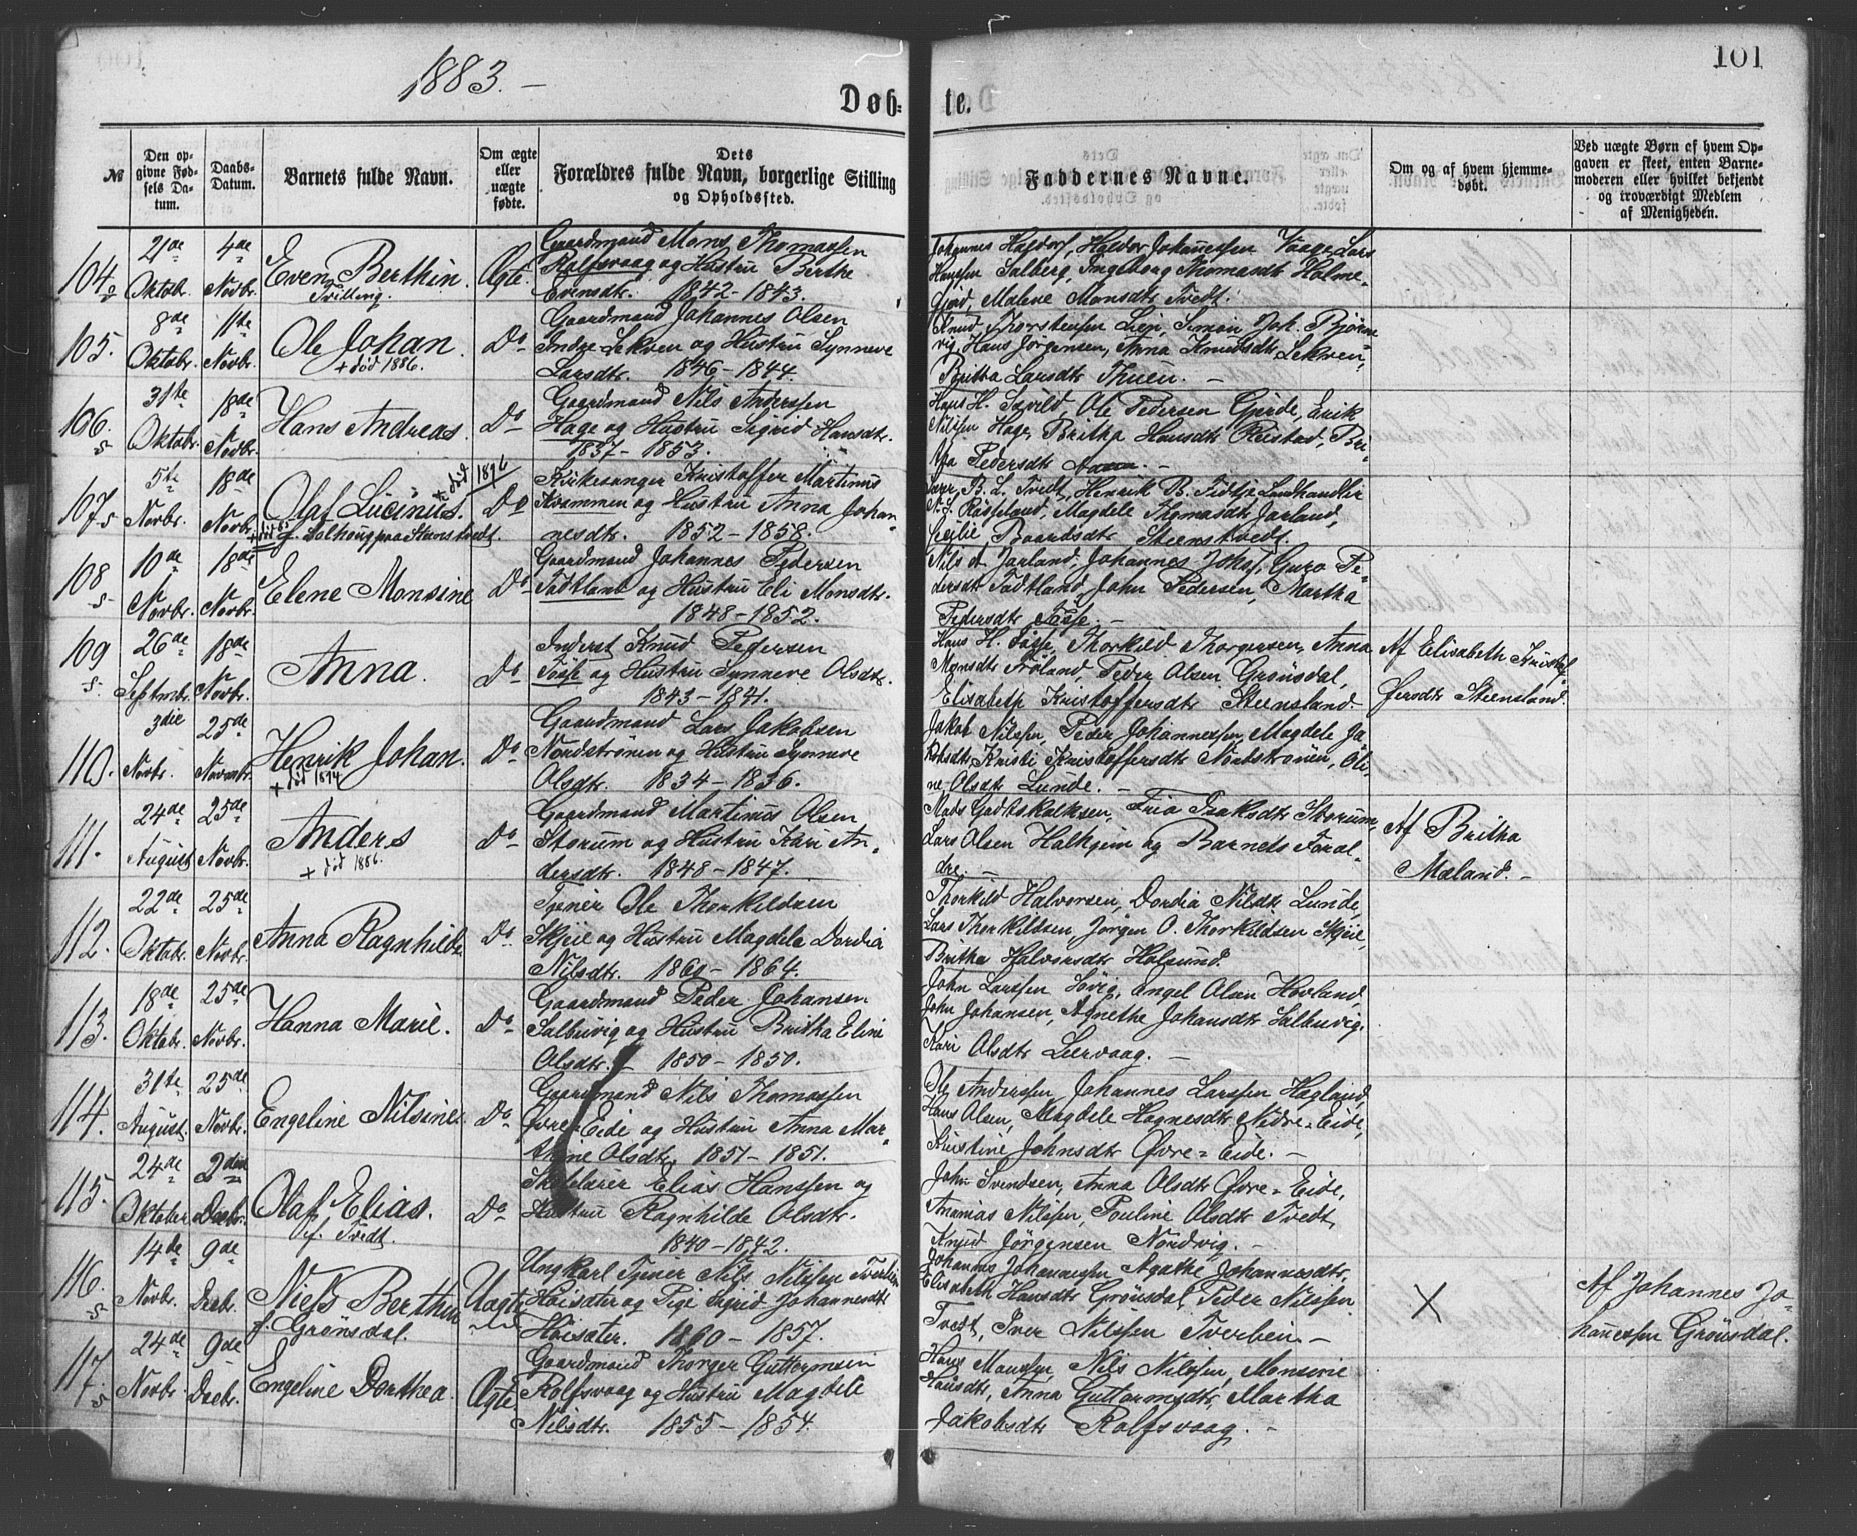 1883. —
101
Døb-
te.
№
Den op-
givne Fød-
sels Da-
tum.
Daabs-
Datum.
Barnets fulde Navn.
Om ægte
eller
uægte
fødte.
Dets
Forældres fulde Navn, borgerlige Stilling
og Opholdssted.
Faddernes Navne.
Om og af hvem hjemme-
døbt.
Ved uægte Børn af hvem Op-
gaven er skeet, enten Barne-
moderen eller hvilket bekjendt
og troværdigt Medlem
af Menigheden.
104.
21de
Oktobr.
4de
Novbr.
Even Berthin.
Tvilling.
Ægte.
Gaardmand Mons Thomassen
Rolfsvaag og Hustru Berthe
Evensdtr. 1842 - 1843.
Johannes Haldors, Haldor Johannessen Vaage, Lars
Hanssen Salberg, Ingeborg Thomasdtr Holme-
Gjerd, Malene Monsdtr Tvedt.
105.
8de
Oktobr.
11te
Novbr.
Ole Johan.
+ död 1886.
Do
Gaardmand Johannes Olsen
Indre Lekven og Hustru Synneve
Larsdtr. 1846 - 1844.
Knud Thorstensen Lien, Simon Joh. Bjørne-
vig, Hans Jørgensen, Anna Knudsdtr Lekven,
Britha Larsdtr Thuen. —
106.
s
31te
Oktobr.
18de
Novbr.
Hans Andreas.
Do
Gaardmand Nils Anderssen
Hage og Hustru Sigrid Hansdtr.
1837 - 1853.
Hans H. Ole Pedersen Gjerde, Erik
Nilssen Hage, Britha Hansdtr Røstad, Bri-
tha Pedersdtr —
107.
s
5te
Novbr.
18de
Novbr.
Olaf Lucinus.
+ död 1896
f. Solhoug paa Stenstvedt.
Do
Kirkesanger Kristoffer Martinus
Kvammen og Hustru Anna Johan-
nesdtr. 1852 - 1858.
Lærer B. L. Tvedt, Henrik B. Landhandler
N. J. Røsseland, Magdele Thomasdtr Jarland,
Baardsdtr Steenstvedt.
108
s
10de
Novbr.
18de
Novbr.
Elene Monsine
Do
Gaardmand Johannes Pedersen
Tadtland og Hustru Eli Monsdtr.
1848 - 1852.
Nils Jarland, Johannes Guro Pe-
dersdtr Tadtland, John Pedersen, Martha
Pedersdtr Tøsse. —
109
s
26de
Septmbr.
18de
Novbr.
Anna.
Do
Inderst Knud Pedersen
Tøsse og Hustru Synneve Olsdtr.
1843 - 1841.
Hans H. Tøsse, Thorkild Thorgersen, Anna
Monsdtr Frøland, Peder Olsen Grønsdal,
Elisabeth Kristoffersdtr Steensland.
Af Elisabeth Kristof-
fersdtr Steensland.
110.
3die
Novbr.
25de
Novembr.
Henrik Johan.
+ död 1894
Do
Gaardmand Lars Jakobsen
Nordstrønen og Hustru Synneve
Olsdtr. 1834 - 1836.
Jakob Nilssen, Peder Johannessen, Magdele Ja-
kobsdtr, Kristi Kristoffersdtr Nordstrønen, Oli-
ne Olsdtr Lunde. —
111.
24de
August
25de
Novbr.
Anders
+ död 1886.
Do
Gaardmand Martinus Olsen
Storum og Hustru Kari An-
dersdtr. 1848 - 1847.
Mads Gadtskalksen, Isaksdtr Storum,
Lars Olsen Halhjem og Barnets Foræl-
dre. —
Af Britha
Mæland. —
112.
22de
Oktobr.
25de
Novbr.
Anna Ragnhilde
Do
Tjener Ole Thorkildsen
Skjeie og Hustru Magdela Dordia
Nilsdtr. 1860 - 1864.
Thorkild Halversen, Dordia Nilsdtr Lunde,
Lars Thorkildsen, Jørgen O. Thorkildsen Skjeie,
Britha Halvorsdtr Holsund.
113.
18de
Oktobr.
25de
Novbr.
Hanna Marie.
Do
Gaardmand Peder Johansen
Salbuvig og Hustru Britha Elini
Olsdtr. 1850 - 1850.
John Larssen Søvig, Engel Olsen Hovland,
John Johansen, Agnethe Johansdtr Salbuvig,
Kari Olsdtr Leervaag. —
114.
31te
August.
25de
Novbr.
Engeline Nilsine.
Do
Gaardmand Nils Thomassen
Øvre-Eide og Hustru Anna Mar-
thine Olsdtr. 1851 - 1851.
Ole Anderssen, Johannes Larssen Hagland,
Hans Olsen, Magdele Hagnesdtr Nidre-Eide,
Kristine Johnsdtr Øvre-Eide. —
115.
24de
Oktober
2den
Decbr.
Olaf Elias.
f. Tvedt.
Do
Skolelærer Elias Hanssen og
Hustru Ragnhilde Olsdtr.
1840 - 1842.
John Svendsen, Anna Olsdtr Øvre-Eide,
Ananias Nilssen, Pouline Olsdtr Tvedt,
Knud Jörgensen Nordvig. —
116.
s
14de
Novbr.
9de
Decbr.
Niels Berthin
f. Grönsdal.
Uægte
Ungkarl Tjener Nils Nilssen Tverbein
Høisæter og Pige Sigrid Johannesdtr
Høisæter. 1860 - 1857.
Johannes Johannessen, Agathe Johannesdtr,
Elisabeth Hansdtr Grönsdal, Peder Nilssen
Tvedt, Iver Nilssen Tverbein. —
X
Af Johannes Jo-
hannessen Grönsdal.
117.
s
24de
Novbr.
9de
Decbr.
Engeline Dorthea.
Ægte
Gaardmand Thorger Guttormsen
Rolfsvaag og Hustru Magdele
Nilsdtr. 1855 - 1854.
Hans Monssen, Nils Nilssen, Monsine
Hansdtr, Anna Guttormsdtr, Martha
Jakobsdtr Rolfsvaag. —